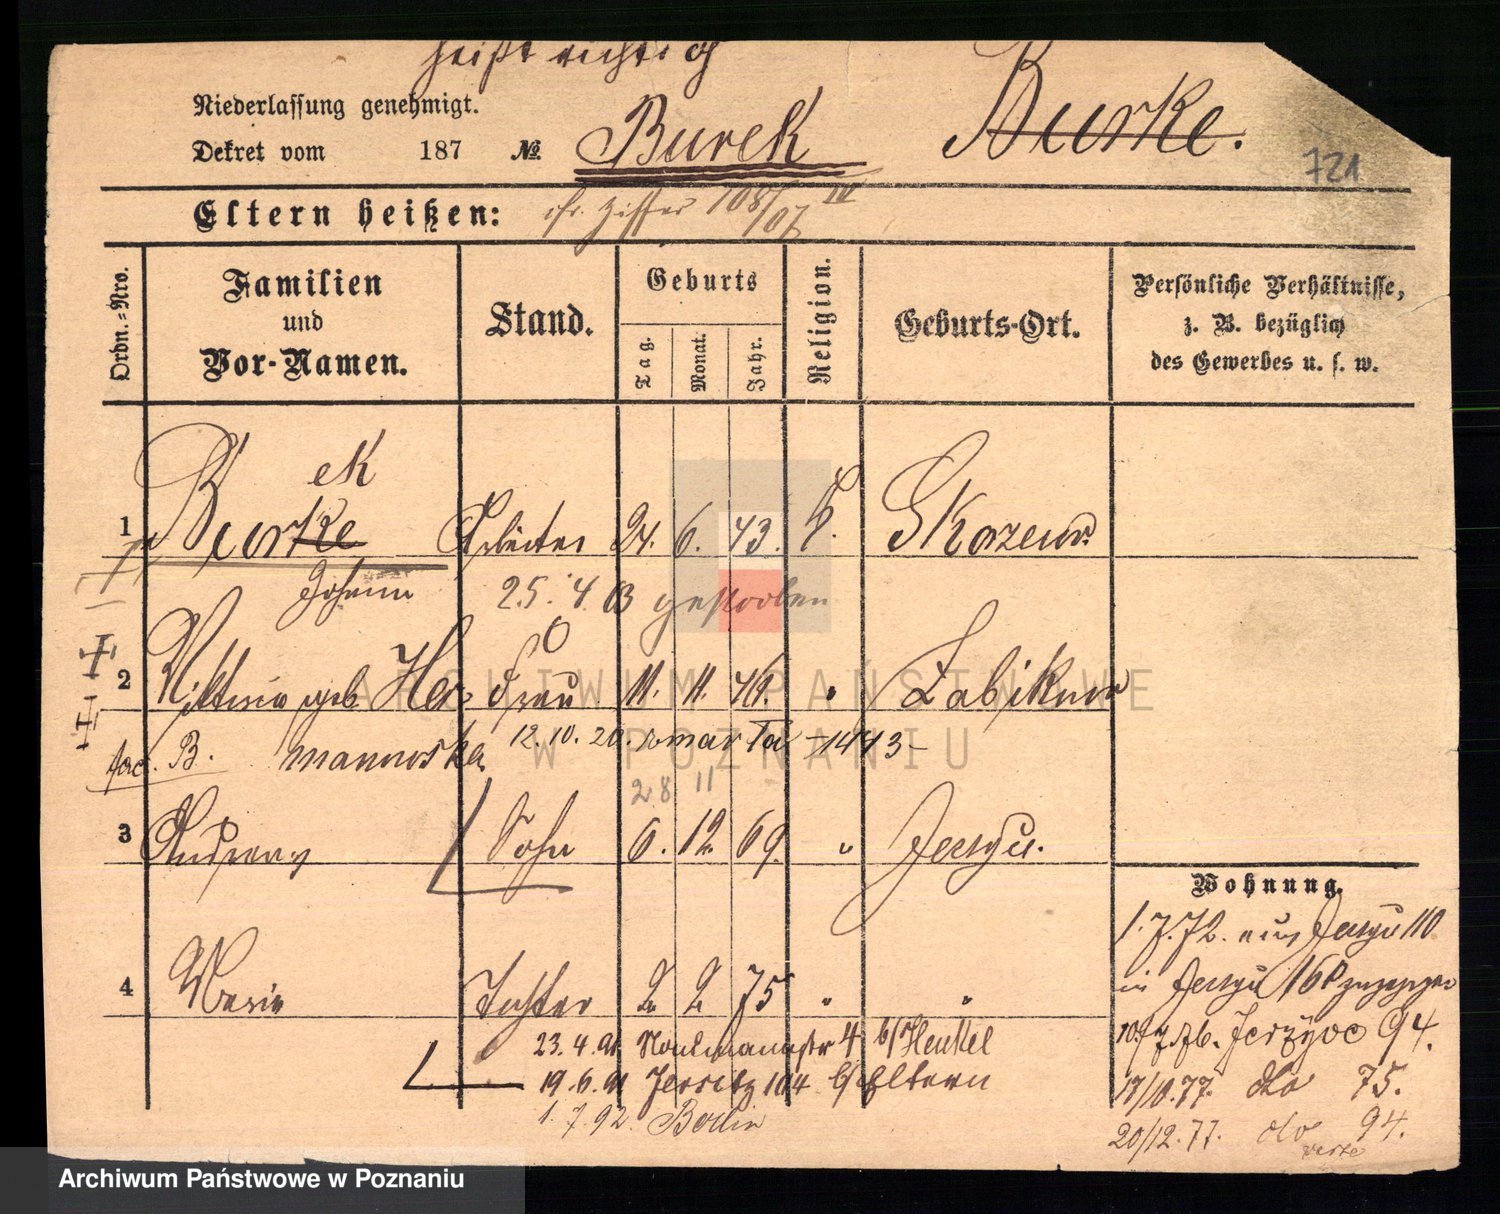 heißt richtig
Niederlassung genehmigt.
Dekret vom 187 № Burek Burke.
721
Eltern heißen: cfr. Ziffer 108/07 IV
Ordn.=Nro.
Familien
und
Vor-Namen.
Stand.
Geburts
Tag.
Monat.
Jahr.
Religion.
Geburts-Ort.
Persönliche Verhältnisse,
z. B. bezüglich
des Gewerbes u. s. w.
ek
1 Burke Arbeiter 24. 6. 43. k. Skorzewo
Johann 25. 4. 03 gestorben
2 geb. Her- Frau 11. 11. 46. " Zabikowo
B. manowska 12. 10. 20.
28 11
3 Andreas Sohn 6. 12. 69. " Jerzyce.
4 Marie Tochter 2. 2 75 " "
Wohnung.
1.7.72. aus Jerzyce 110
in Jerzyce 168 zugezogen
10/7.76. Jerzyce 94.
17/10.77. dto 75.
20/12.77. dto 94.
verte
23.4.91 4 b/Henkel
19.6.91 Jersitz 104 b/Eltern
1.7.92. Berlin
ARCHIWUM PAŃSTWOWE
W POZNANIU
Archiwum Państwowe w Poznaniu